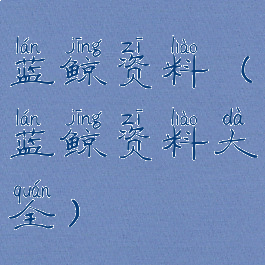 lán jīng zī liào
蓝鲸资料（
lán jīng zī liào dà
蓝鲸资料大
quán
全）